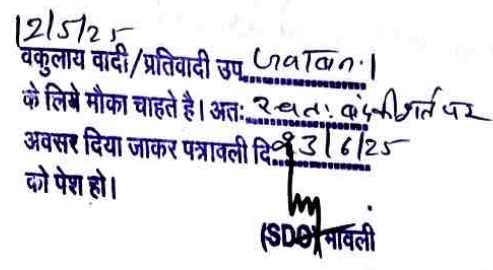 12/5/25
वकुलाय वादी/प्रतिवादी उप. जवाब
के लिये मौका चाहते है। अतः स्वतः बंद की शर्त पर
अवसर दिया जाकर पत्रावली दि. 3/6/25
को पेश हो।
(SDO) मावली